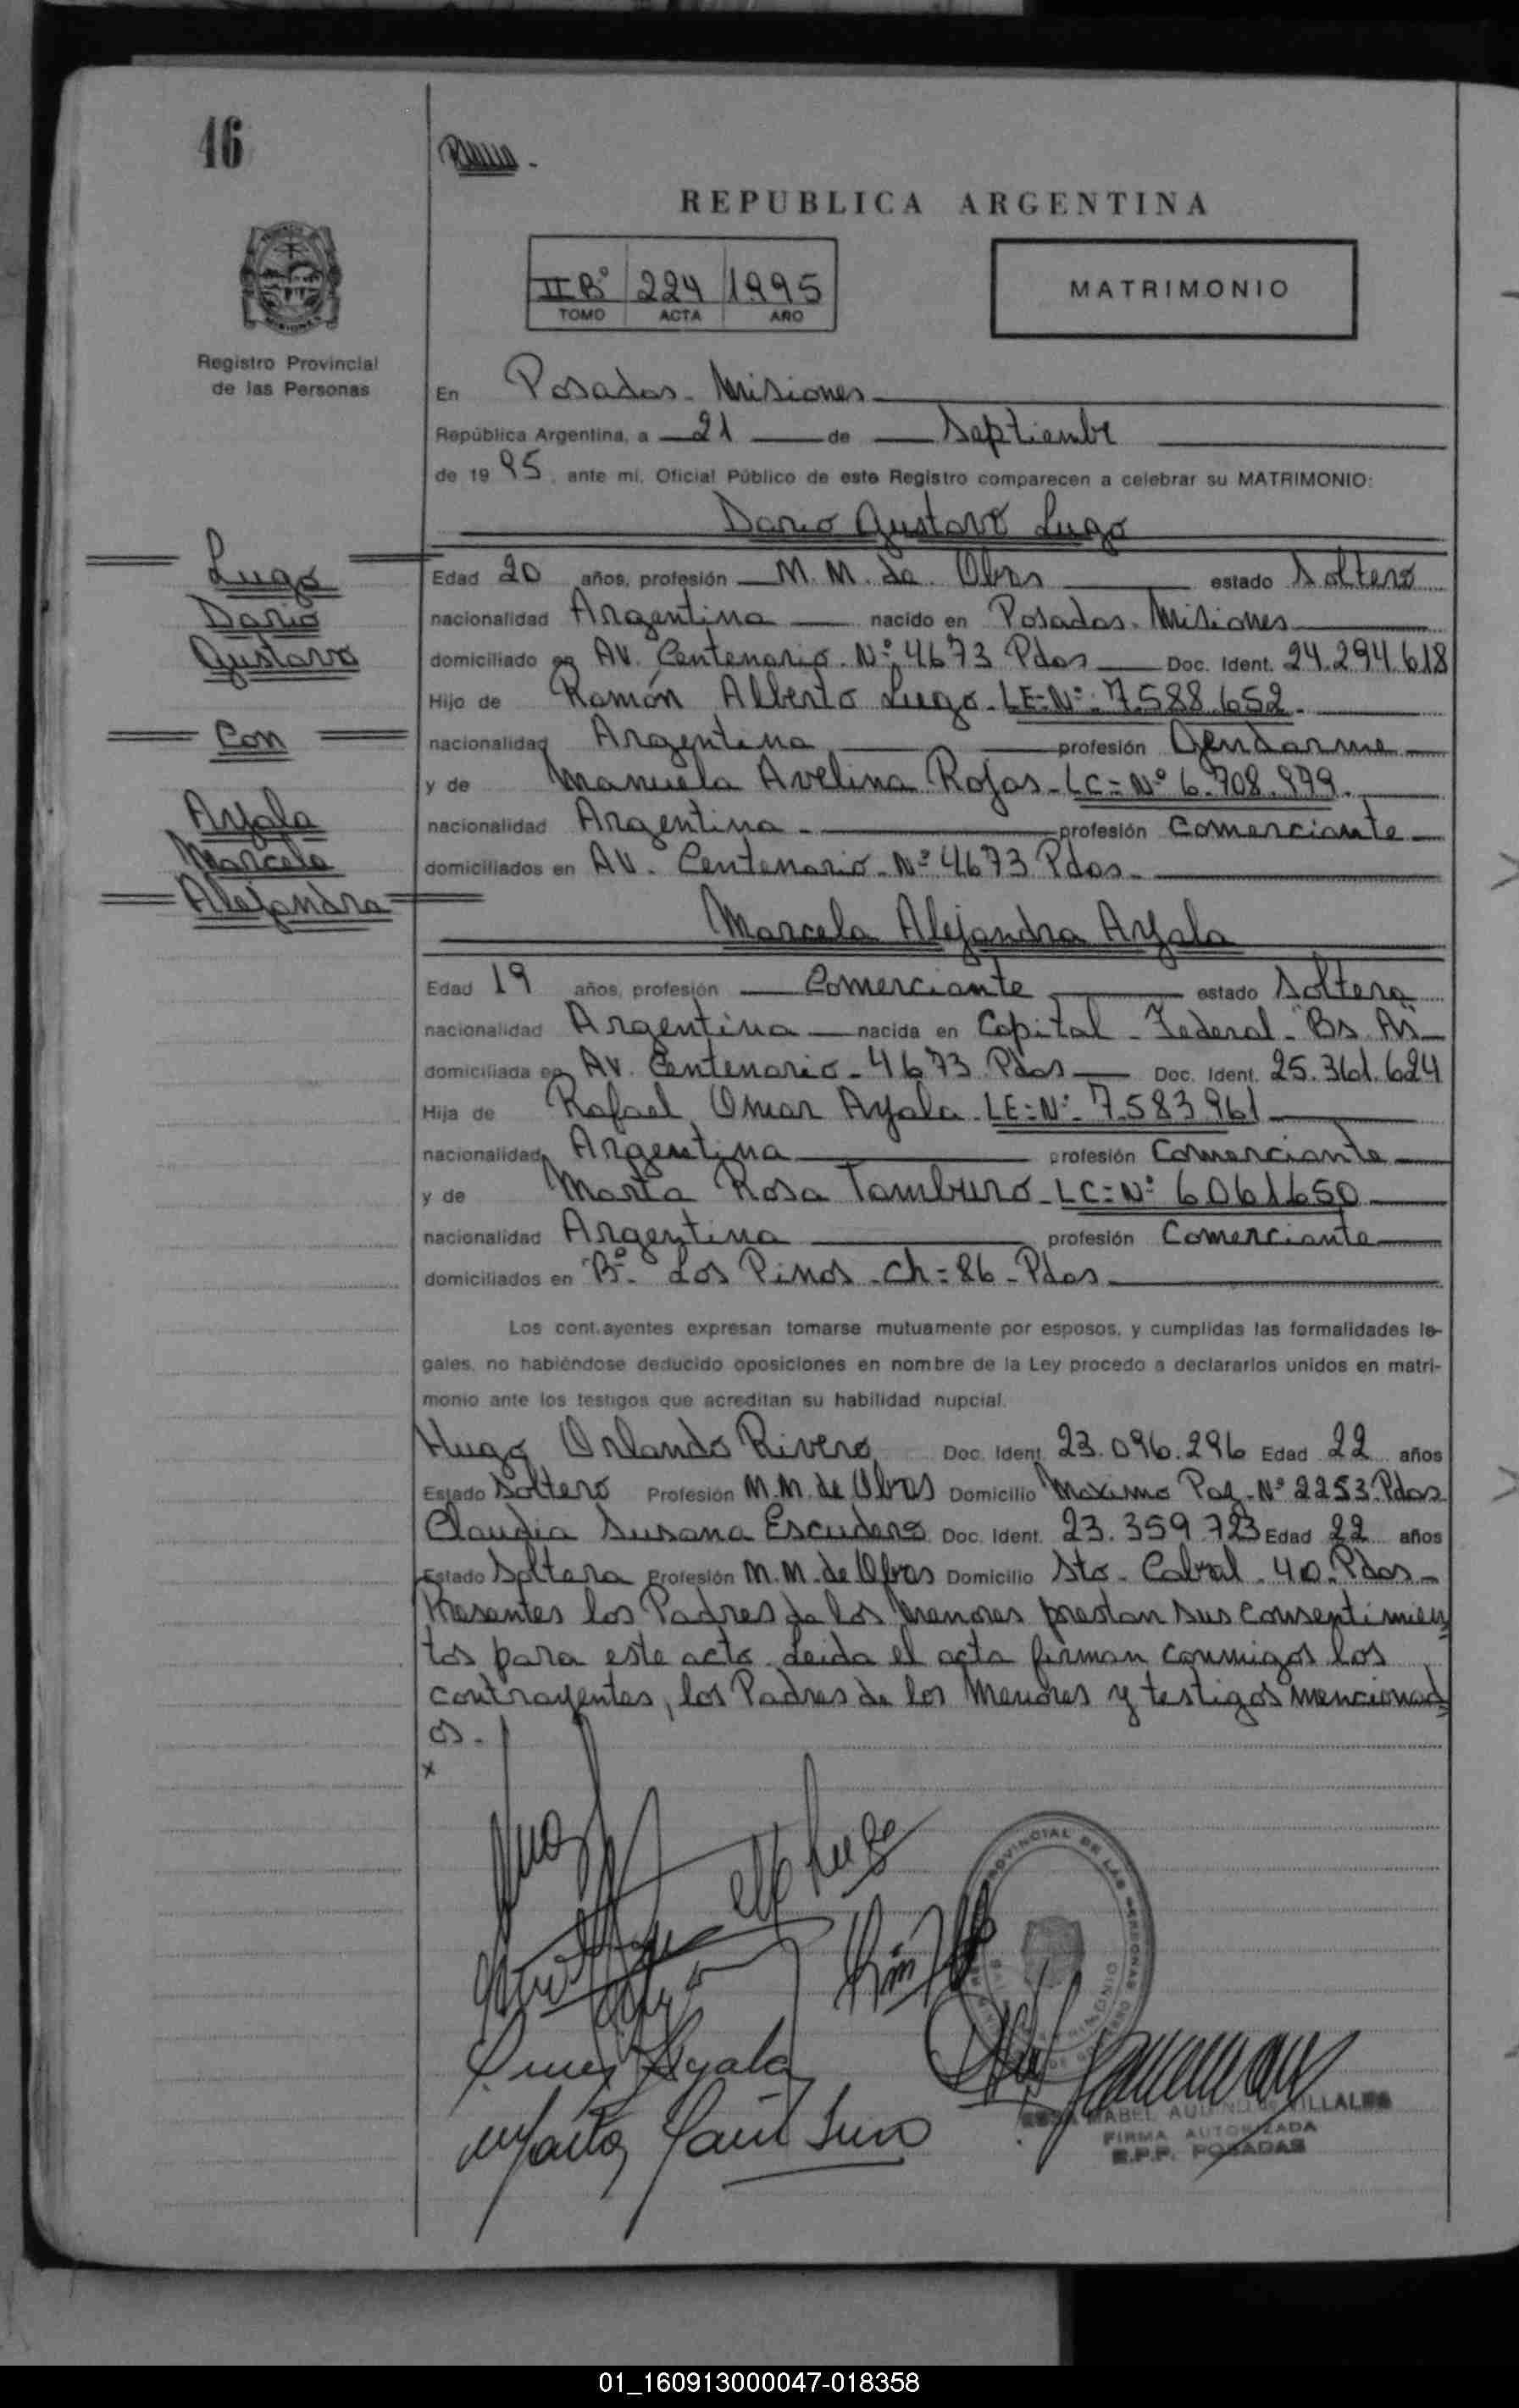 46
REPUBLICA ARGENTINA
II Bº 224 1995
TOMO ACTA AÑO
MATRIMONIO
Registro Provincial
de las Personas
En Posadas - Misiones
República Argentina, a 21 de Septiembre
de 1995, ante mí, Oficial Público de este Registro comparecen a celebrar su MATRIMONIO:
Dario Gustavo Lugo
Lugo
Dario
Gustavo
Con
Ayala
Marcela
Alejandra
Edad 20 años, profesión M.M. de Obras estado Soltero
nacionalidad Argentina nacido en Posadas. Misiones
domiciliado en AV. Centenario. Nº 4673 Pdas Doc. Ident. 24.294.618
Hijo de Ramón Alberto Lugo - LE=Nº 7.588.652.
nacionalidad Argentina profesión Gendarme
y de Manuela Avelina Rojas - LC=Nº 6.708.979.
nacionalidad Argentina - profesión Comerciante
domiciliados en AV. Centenario - Nº 4673 Pdas.
Marcela Alejandra Ayala
Edad 19 años, profesión Comerciante estado Soltera
nacionalidad Argentina nacida en Capital - Federal - Bs. As
domiciliada en AV. Centenario - 4673 Pdas Doc. Ident. 25.361.624
Hija de Rafael Omar Ayala - LE=Nº 7.583961
nacionalidad Argentina profesión Comerciante
y de Marta Rosa Tamburo - LC=Nº 6061650
nacionalidad Argentina profesión Comerciante
domiciliados en Bº Los Pinos - Ch=86 - Pdas
Los contrayentes expresan tomarse mutuamente por esposos, y cumplidas las formalidades le-
gales, no habiéndose deducido oposiciones en nombre de la Ley procedo a declararlos unidos en matri-
monio ante los testigos que acreditan su habilidad nupcial.
Hugo Orlando Rivero Doc. Ident. 23.096.296 Edad 22 años
Estado Soltero Profesión M.M. de Obras Domicilio Maximo Paz - Nº 2253 Pdas
Claudia Susana Escudero Doc. Ident. 23.359.723 Edad 22 años
Estado Soltera Profesión M.M. de Obras Domicilio Sto - Cabral - 40 - Pdas
Presentes los Padres de los menores prestan sus consentimien
tos para este acto. Leida el acta firman conmigos los
contrayentes, los Padres de los Menores y testigos mencionad
os.
x
Lugo
Omar Ayala
Marta Tamburo
PROVINCIAL DE LAS PERSONAS
MABEL VILLALBA
FIRMA AUTORIZADA
R.P.P. POSADAS
01_160913000047-018358